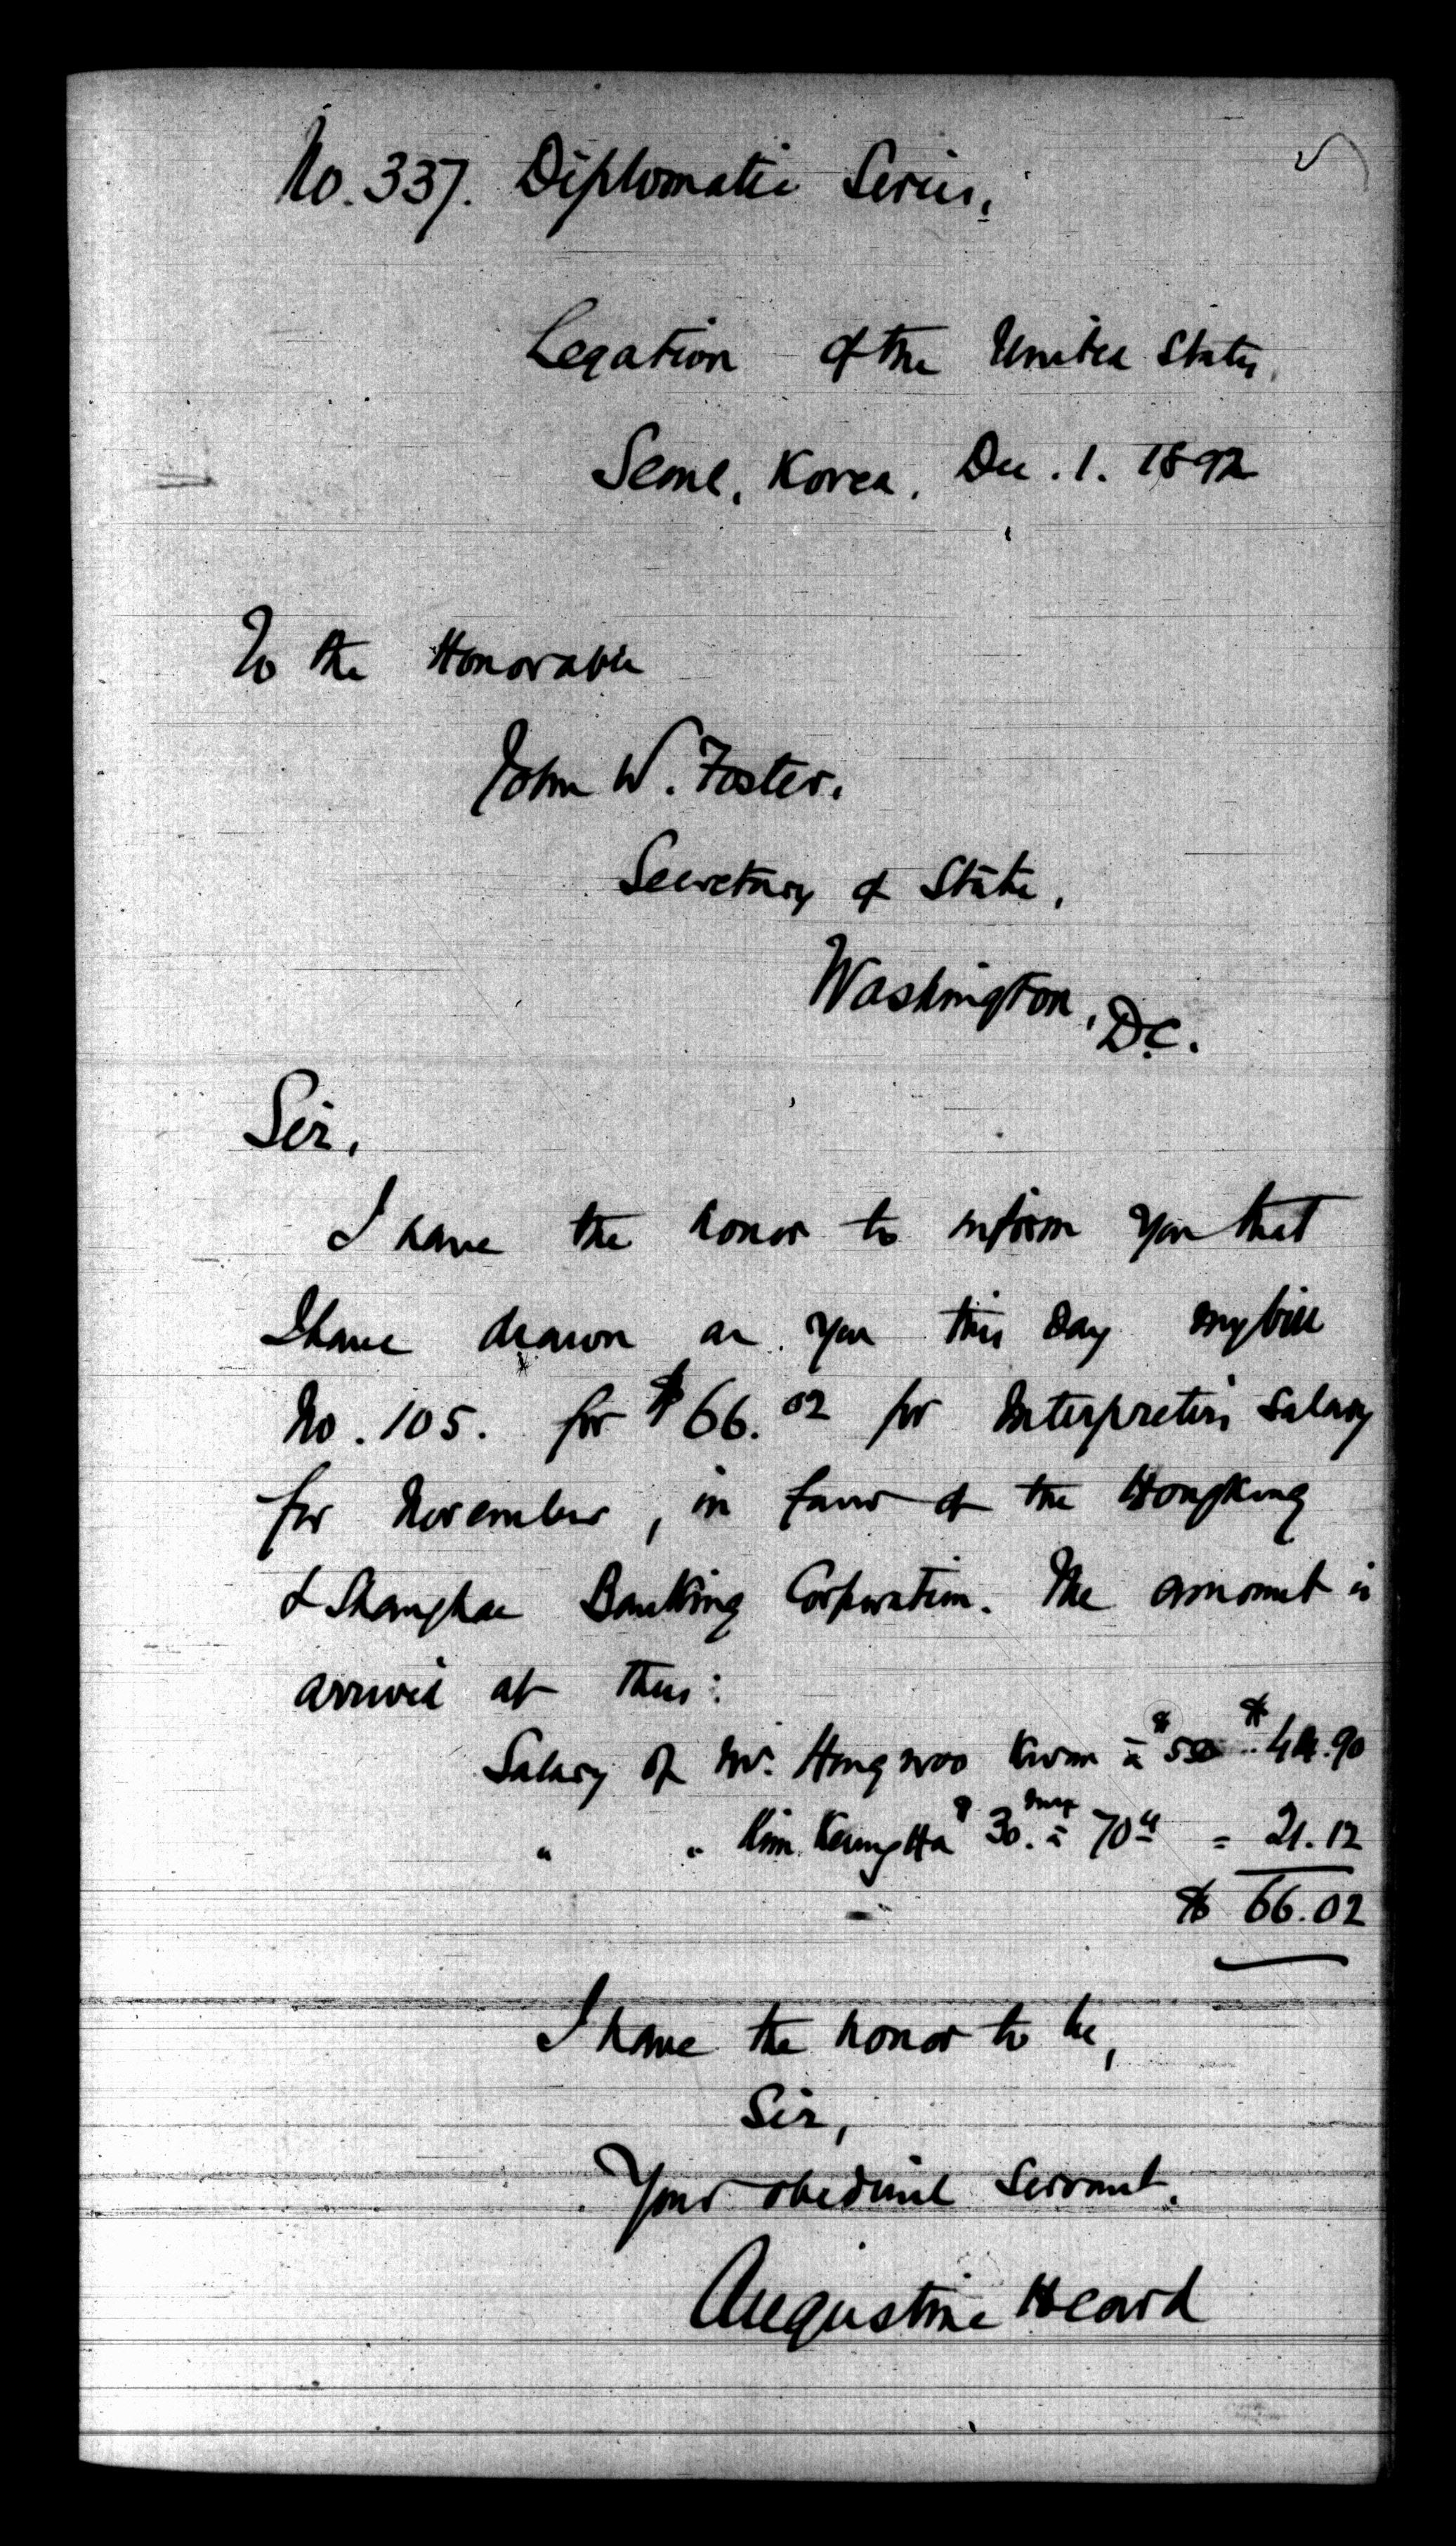 No. 337. Diplomatic Series.
Legation of the United States
Seoul, Korea, Dec. 1. 1892
To the Honorable
John W. Foster.
Secretary of State,
Washington, D.C.
Sir,
I have the honor to inform you that
I have drawn on you this day my bill
No. 105. for $66.02 for Interpreters salary
for November, in favor of the Hongkong
& Shanghae Banking Corporation. The amount is
arrived at thus:
Salary of Mr. Hong woo Kwan à $50 $44.90
" " Kim Keung Ha $30. à 70 = 21.12
$ 66.02
I have the honor to be,
Sir,
Your obedient servant.
Augustine Heard